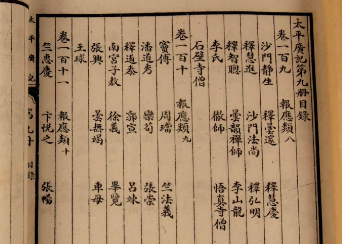 太平廣記第九冊目錄
卷一百九 報應類八
沙門静生 釋曇邃 釋慧慶
釋慧進 沙門法尚 釋弘明
釋智聰 曇韻禪師 李山龍
李氏 徹師 悟真寺僧
石壁寺僧
卷一百十 報應類九
竇傅 周璫 竺法義
潘道秀 欒荀 張崇
釋道泰 郭宣 呂竦
南宮子敖 徐義 畢覽
張興 曇無竭 車母
王球
卷一百十一 報應類十
竺惠慶 卞悅之 張暢
太平廣記
第九冊
目錄